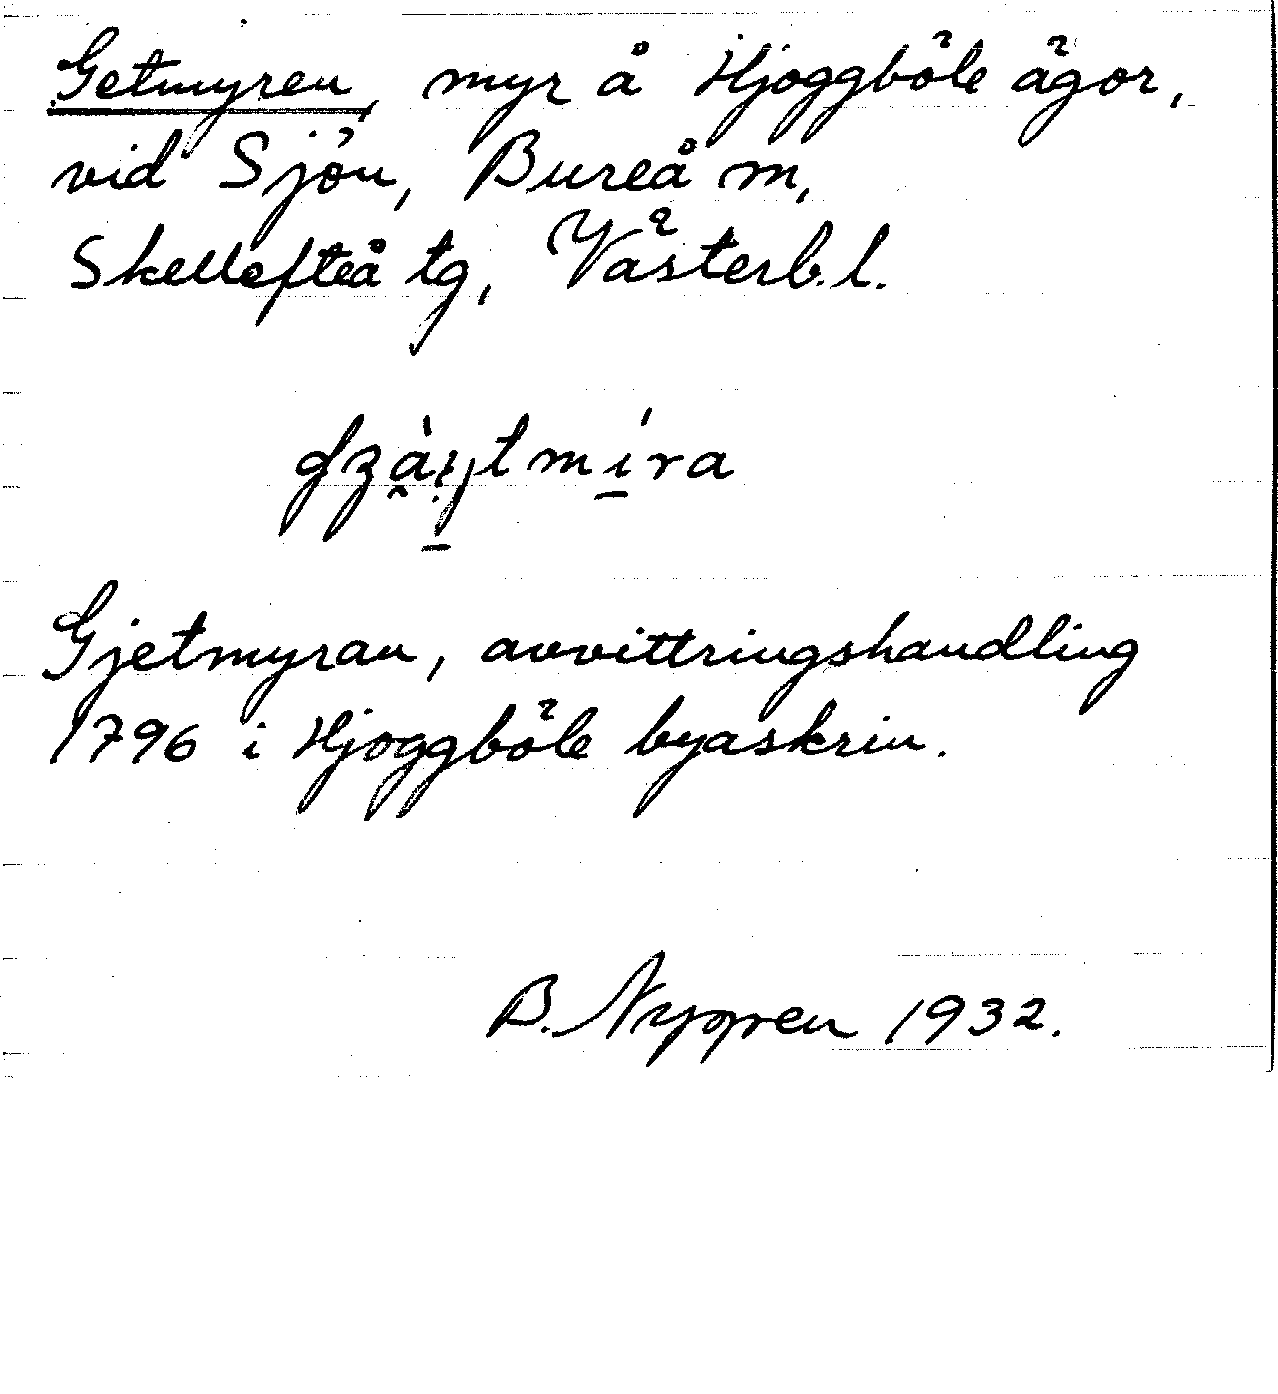 Getmyren, myr å Hjoggböle ägor,
vid Sjön, Bureå m,
Skellefteå tg, Västerb.l.
Gjetmyran, avvittringshandling
1796 i Hjoggböle byaskrin.
B. Nygren 1932.